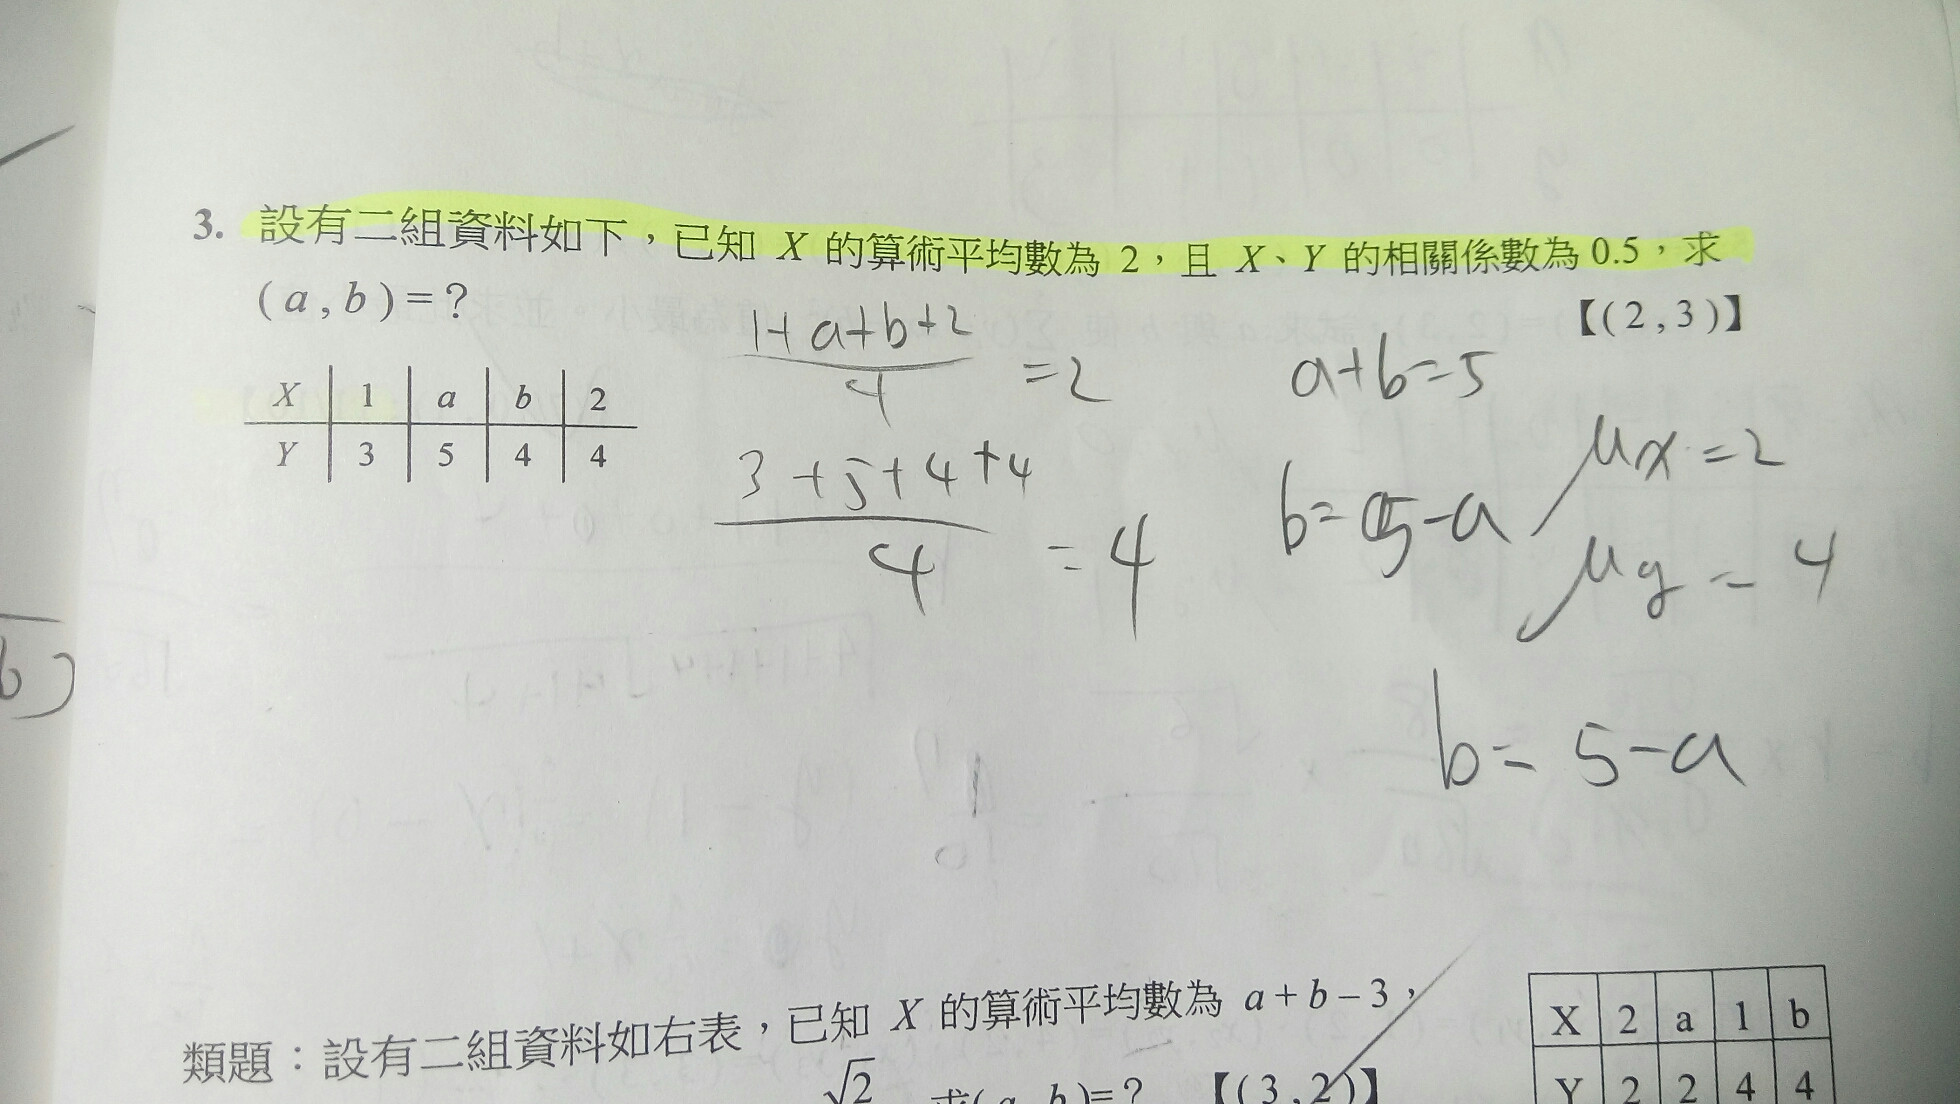 3. 設有二組資料如下，已知 X 的算術平均數為 2，且 X、Y 的相關係數為 0.5，求
(a,b)=？ 【(2,3)】
X 1 a b 2
Y 3 5 4 4
1+a+b+2
4
=2
3+5+4+4
4
=4
a+b=5
b=5-a
μx=2
μy=4
b=5-a
b)
類題：設有二組資料如右表，已知 X 的算術平均數為 a+b-3，
√2 求(a,b)=？ 【(3,2)】
X 2 a 1 b
Y 2 2 4 4